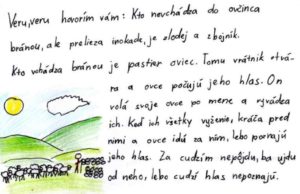 Veru, veru hovorím vám: Kto nevchádza do ovčinca
bránou, ale prelieza inokade, je zlodej a zbojník.
Kto vchádza bránou je pastier oviec. Tomu vrátnik otvá-
ra a ovce počujú jeho hlas. On
volá svoje ovce po mene a vyvádza
ich. Keď ich všetky vyženie, kráča pred
nimi a ovce idú za ním, lebo poznajú
jeho hlas. Za cudzím nepôjdu, ba ujdu
od neho, lebo cudzí hlas nepoznajú.